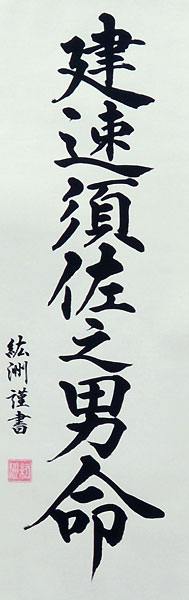 建速須佐之男命
紘洲謹書